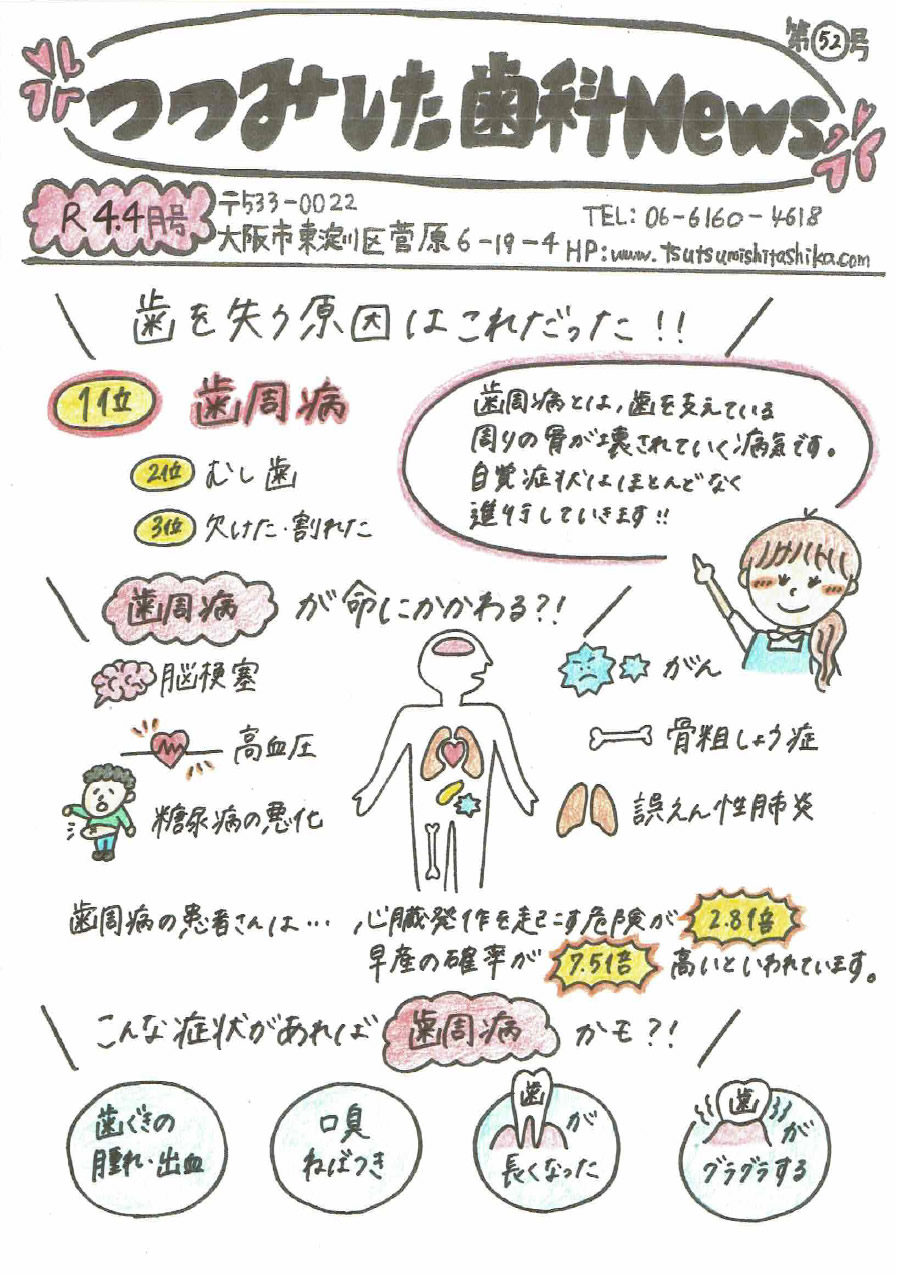 第52号
つつみした歯科News
R4.4月号
〒533-0022
大阪市東淀川区菅原6-19-4
TEL: 06-6160-4618
HP:www.tsutsumishitashika.com
歯を失う原因はこれだった!!
1位 歯周病
2位 むし歯
3位 欠けた・割れた
歯周病とは,歯を支えている
周りの骨が壊されていく病気です。
自覚症状はほとんどなく
進行していきます!!
歯周病が命にかかわる?!
脳梗塞
高血圧
糖尿病の悪化
がん
骨粗しょう症
誤えん性肺炎
歯周病の患者さんは… 心臓発作を起こす危険が2.8倍
早産の確率が7.5倍高いといわれています。
こんな症状があれば歯周病かも?!
歯ぐきの
腫れ・出血
口臭
ねばつき
歯が
長くなった
歯が
グラグラする